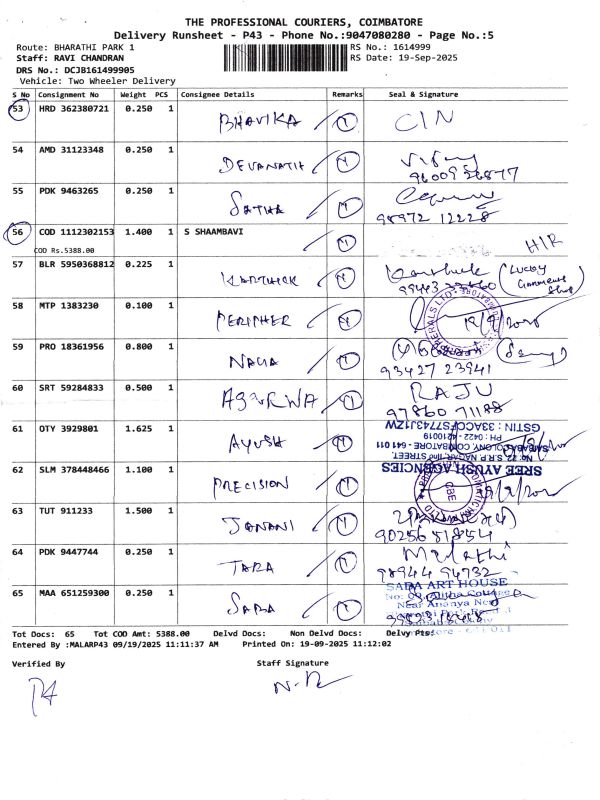 THE PROFESSIONAL COURIERS, COIMBATORE
Delivery Runsheet - P43 - Phone No.:9047080280 - Page No.:5
Route: BHARATHI PARK 1 RS No.: 1614999
Staff: RAVI CHANDRAN RS Date: 19-Sep-2025
DRS No.: DCJB161499905
Vehicle: Two Wheeler Delivery
S No Consignment No Weight PCS Consignee Details Remarks Seal & Signature
53 HRD 362380721 0.250 1 BHAVIKA CIN
54 AMD 31123348 0.250 1 DEVANATH
9600926877
55 PDK 9463265 0.250 1 SATHA
98972 12228
56 COD 1112302153 1.400 1 S SHAAMBAVI
COD Rs.5388.00
57 BLR 5950368812 0.225 1 KARTHICK Karthick (Lucky Garments Shop)
58 MTP 1383230 0.100 1 PERIPHER
59 PRO 18361956 0.800 1 NAGA
93427 23941
60 SRT 59284833 0.500 1 RAJU
97860 71188
61 OTY 3929801 1.625 1 AYUSH
SREE AYUSH AGENCIES
No: 22, S.R.P. NAGAR, IInd STREET,
SAIBABA COLONY, COIMBATORE - 641 011
PH : 0422 - 4210019
GSTIN : 33ACCFS7743J1ZW
62 SLM 378448466 1.100 1 PRECISION
CBE
63 TUT 911233 1.500 1 JANANI
90256 81854
64 PDK 9447744 0.250 1 TARA Malathi
98944 94732
65 MAA 651259300 0.250 1 SABA SABA ART HOUSE
Near Ananya
Tot Docs: 65 Tot COD Amt: 5388.00 Delvd Docs: Non Delvd Docs: Delvy Pts:
Entered By :MALARP43 09/19/2025 11:11:37 AM Printed On: 19-09-2025 11:12:02
Verified By Staff Signature
P4